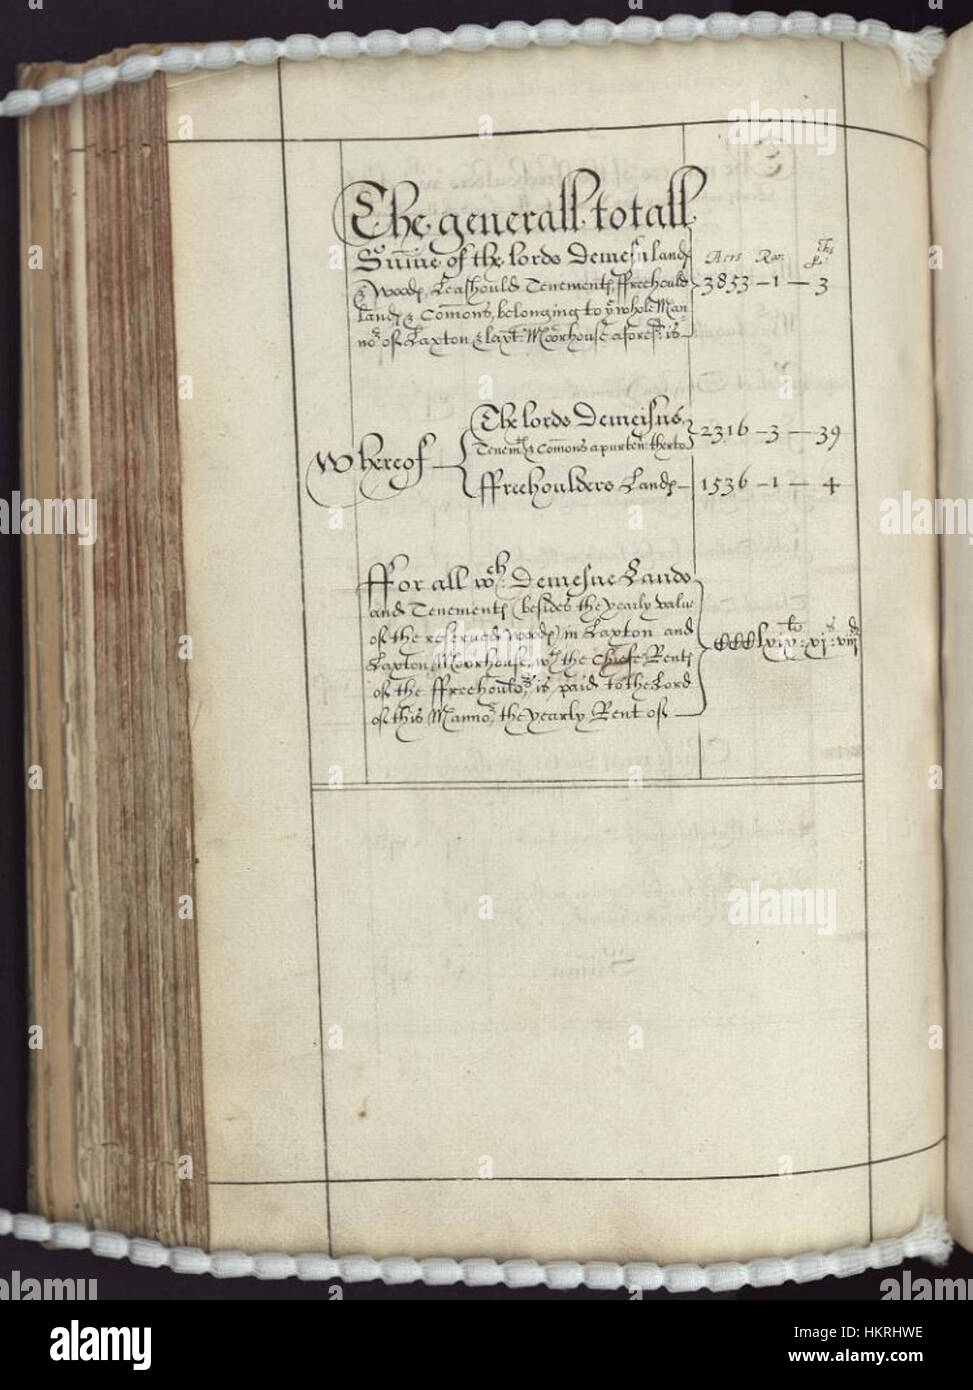 The generall totall
Sum̃e of the lords Demesn land℘ Acrs Roo:
& Wood℘, Leashould Tenement℘, ffreehould 3853 – 1 – 3
land℘ & Com̃ons, belonging to yͤ whole Man-
noʳ of Laxton & laxt: Moorhouse aforesᵈ is
Whereof
The lords Demeisns, 2316 – 3 – 39
Tenemᵗ℘ & Com̃ons apurten: therto
ffreehoulders Land℘ – 1536 – 1 – 4
ffor all wᶜʰ: Demesne Lands
and Tenement℘ (besides the yearly value
of the reserved wood℘) in Laxton and
Laxton Moorhouse, wᵗʰ the Chiefe Rent℘
of the ffreehouldʳˢ, is paid to the Lord
of this Mannoʳ, the yearly Rent of CCCClxiv:ˡⁱ vjˢ: viijᵈ
alamy
Image ID: HKRHWE
www.alamy.com